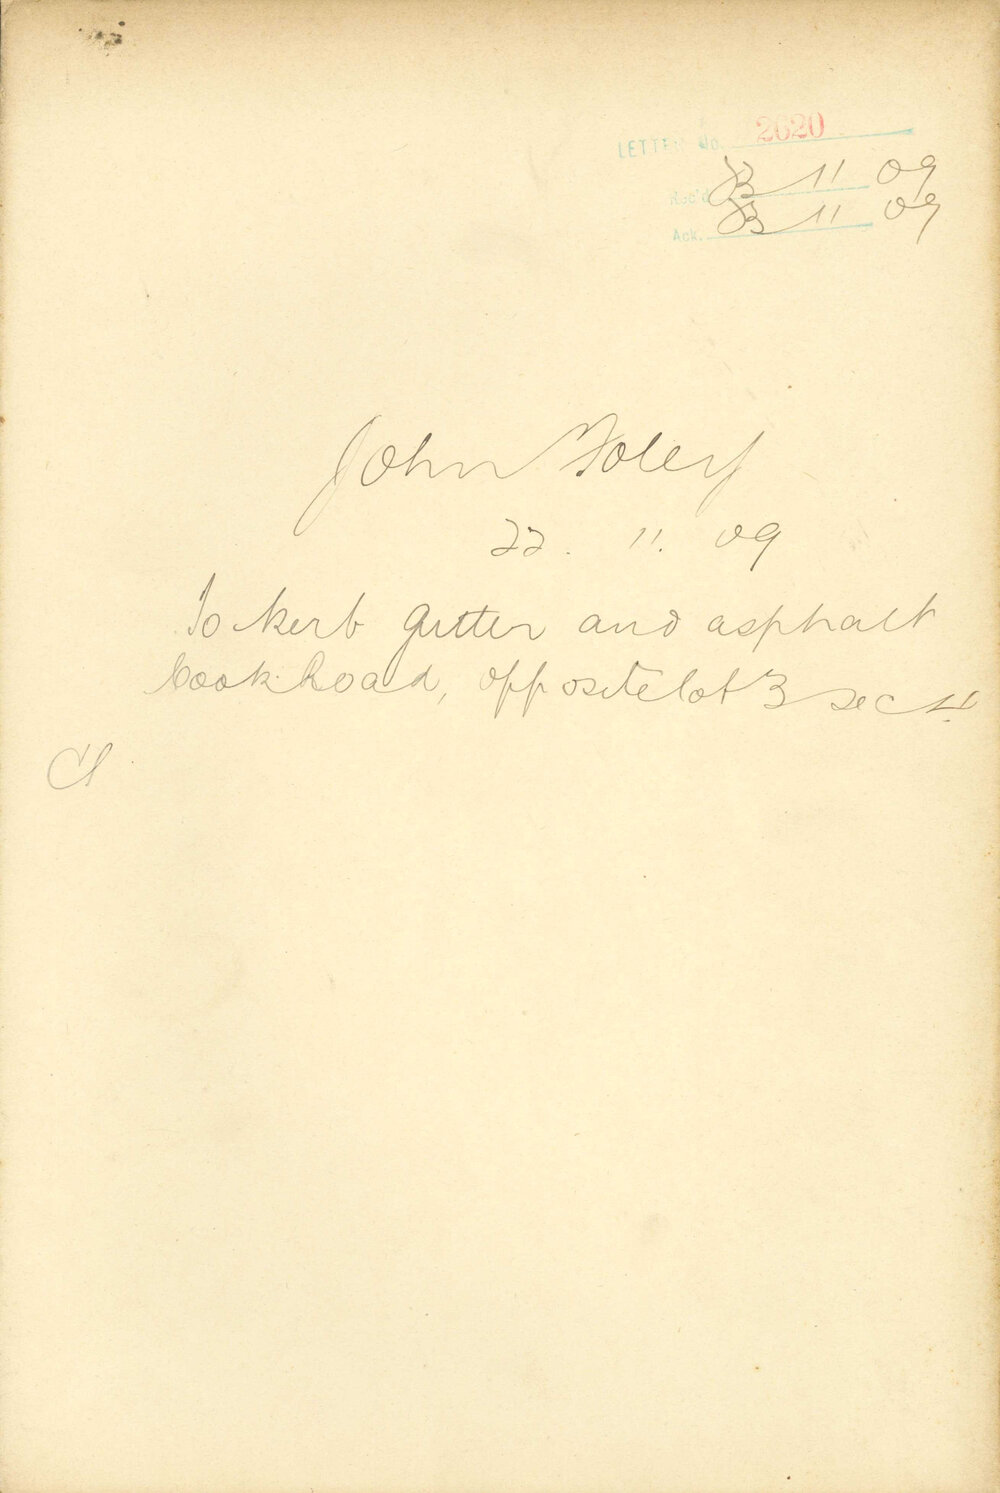 LETTER No. 2620
Rec'd 23 11 09
Ack. 23 11 09
John Foley
22. 11. 09
To kerb gutter and asphalt
Cook Road, opposite lot 3 sec 4.